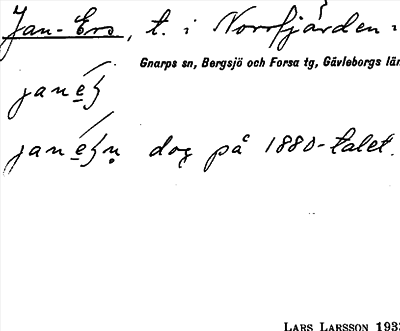 Jan-Ers, t. i Norrfjärden:
Gnarps sn, Bergsjö och Forsa tg, Gävleborgs län
janéʃ
janéʃṇ dog på 1880-talet.
LARS LARSSON 193